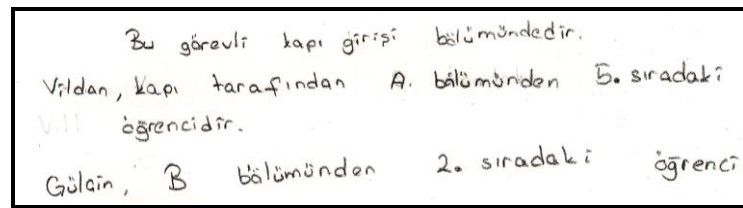 Bu görevli kapı girişi bölümündedir.
Vildan, kapı tarafından A. bölümünden 5. sıradaki
öğrencidir.
Gülçin, B bölümünden 2. sıradaki öğrenci